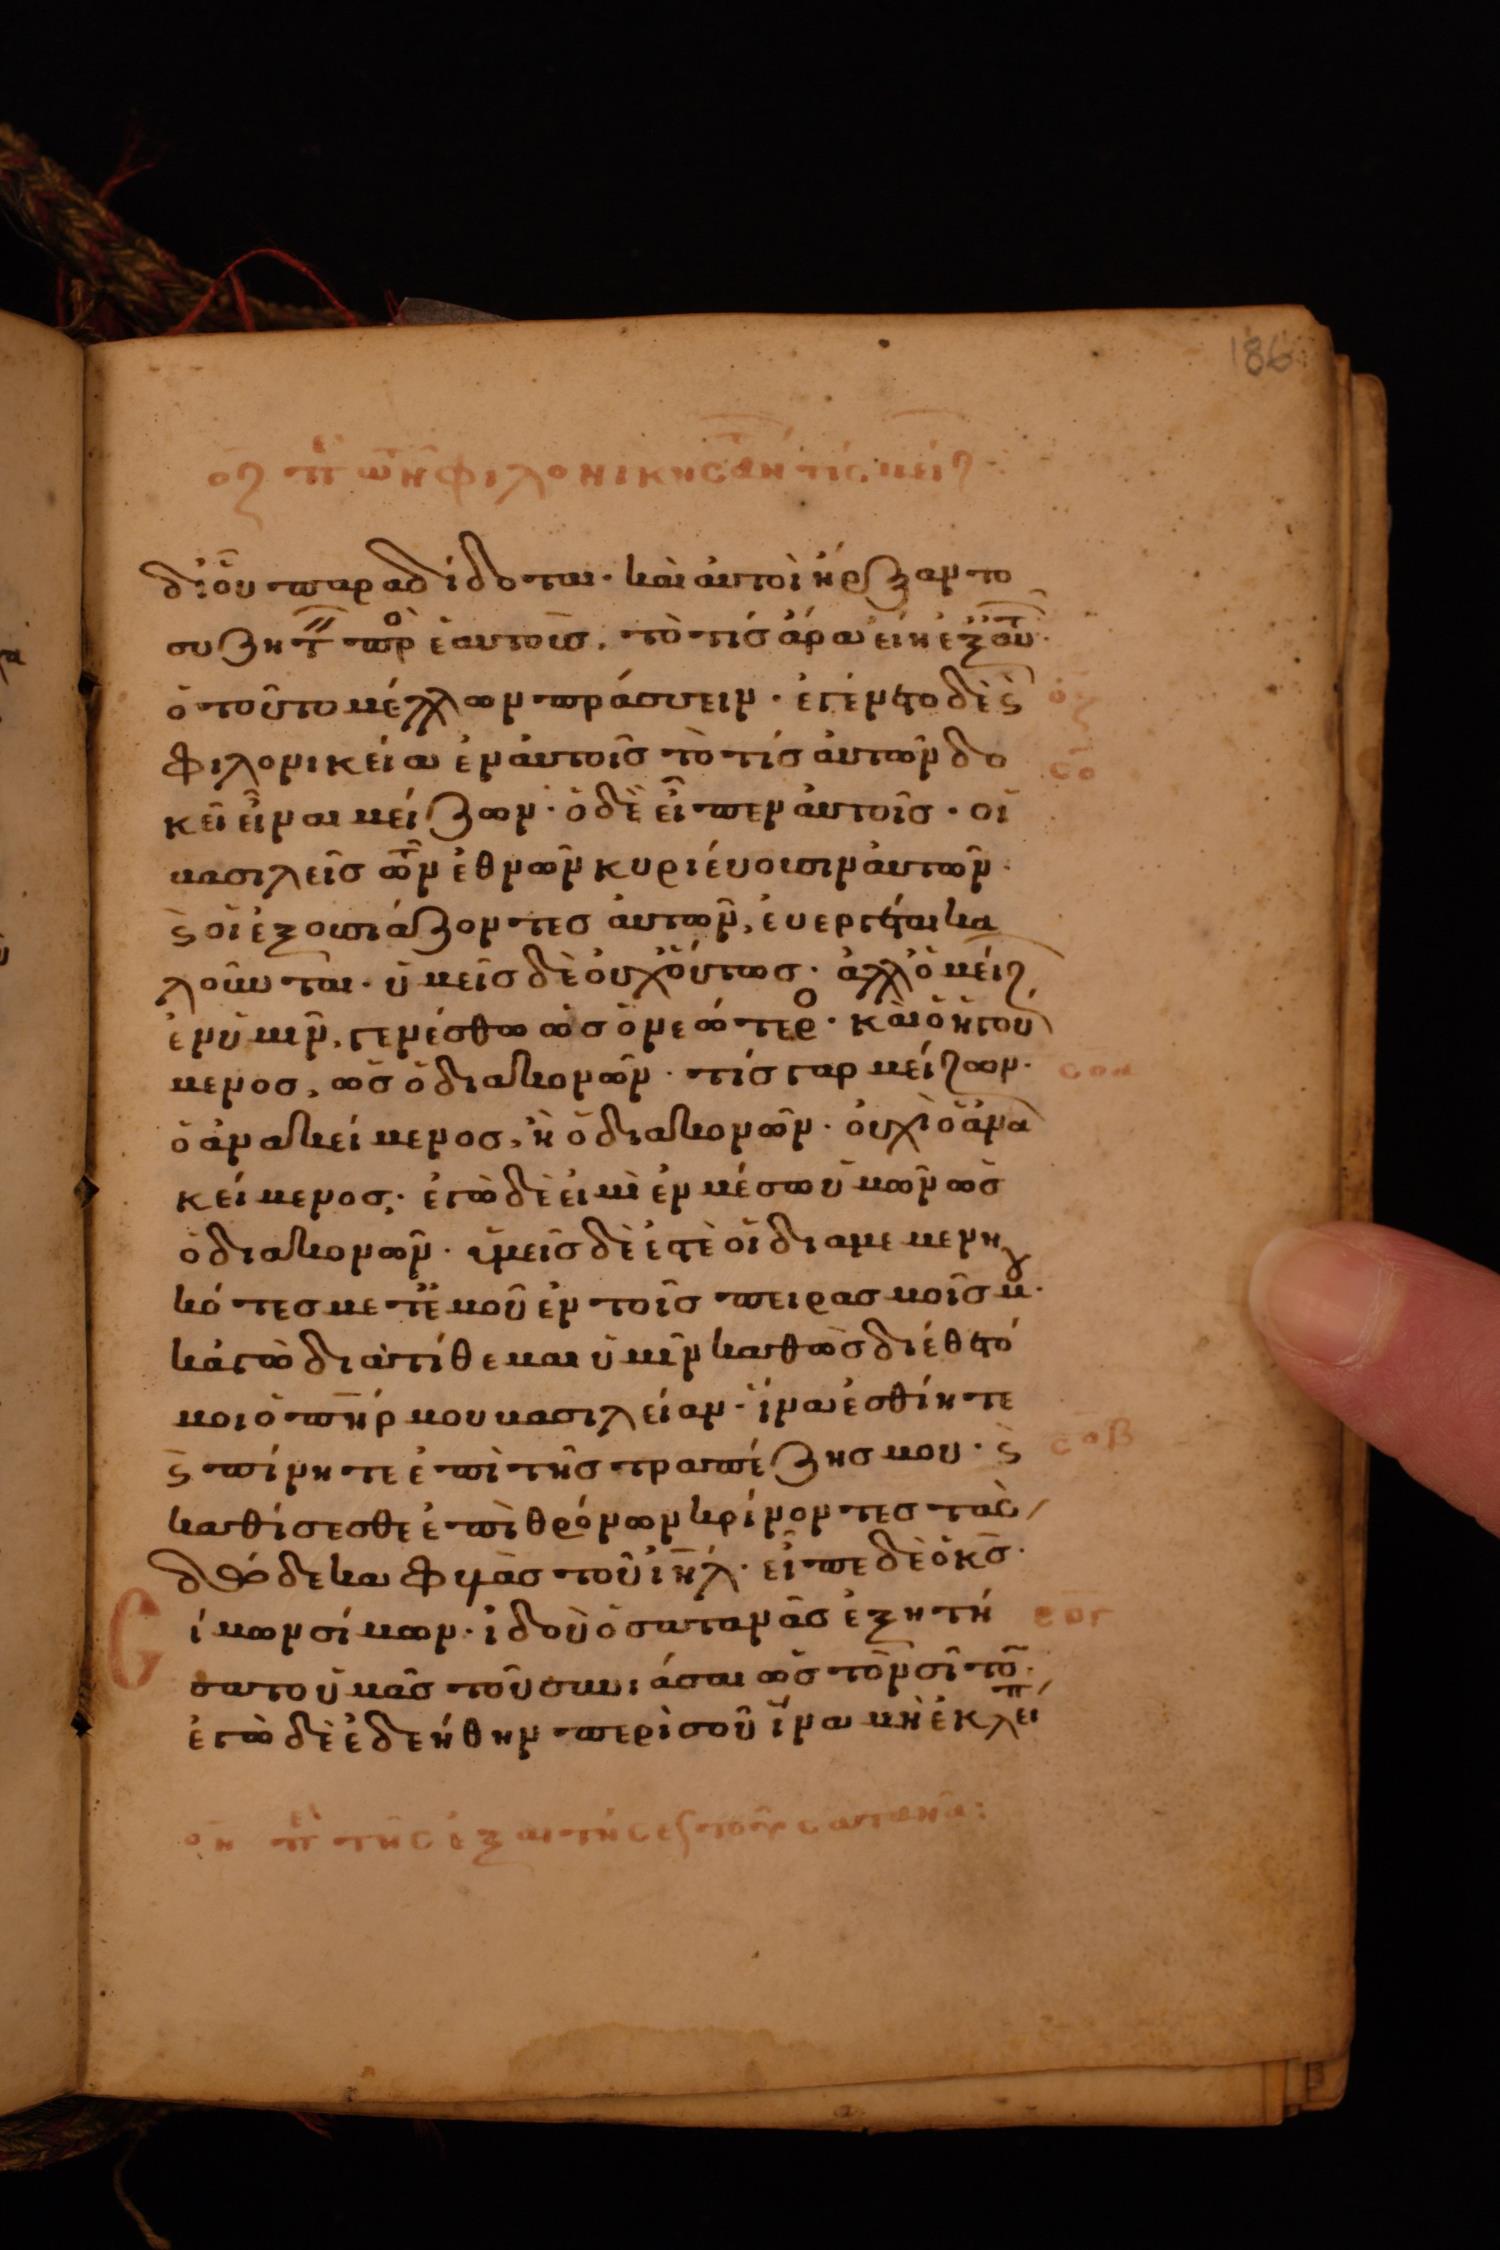 186
οζ πε τῶν φιλονικησάντων τίς μείζ
δι' οὗ παραδίδοται· καὶ αὐτοὶ ἤρξαντο
συζητ πρὸ ἑαυτοῖς, τὸ τίς ἄρα εἴη ἐξ αὐτ·
ὁ τοῦτο μέλλων πράσσειν· ἐγένετο δὲ ϛ οζ
φιλονικεία ἐν αὐτοῖς τὸ τίς αὐτῶν δο σο
κεῖ εἶναι μείζων· ὁ δὲ εἶπεν αὐτοῖς· οἱ
βασιλεῖς τῶν ἐθνῶν κυριεύουσιν αὐτῶν·
ϛ οἱ ἐξουσιάζοντες αὐτῶν, ἐυεργέται κα
λοῦνται· ὑμεῖς δὲ οὐχ οὕτως· ἀλλ' ὁ μείζ
ἐν ὑμῖν, γενέσθω ὡς ὁ νεώτερο· καὶ ὁ ἡγού
μενος, ὡς ὁ διακονῶν· τίς γαρ μείζων· σοα
ὁ ἀνακείμενος, ἢ ὁ διακονῶν· οὐχὶ ὁ ἀνα
κείμενος; ἐγὼ δὲ εἰμὶ ἐν μέσω ὑμῶν ὡς
ὁ διακονῶν· ὑμεῖς δὲ ἐστὲ οἱ διαμεμενη
κότες μετ' ἐμοῦ ἐν τοῖς πειρασμοῖς μου·
κἀγὼ διατίθεμαι ὑμῖν καθὼς διέθετό
μοι ὁ πηρ μου βασιλείαν· ἵνα ἐσθίητε
ϛ πίνητε ἐπὶ τῆς τραπέζης μου· ϛ σοβ
καθίσεσθε ἐπὶ θρόνων κρίνοντες τὰς
δώδεκα φυλὰς τοῦ ιηλ· εἶπε δὲ ὁ κς·
σίμων σίμων· ἰδοὺ ὁ σατανᾶς ἐξητή σογ
σατο ὑμᾶς τοῦ σινιάσαι ὡς τὸν σῖτον·
ἐγὼ δὲ ἐδεήθην περὶ σοῦ ἵνα μὴ ἐκλείπ
οη πε τῆς ἐξαιτήσεως τοῦ σατανᾶ: